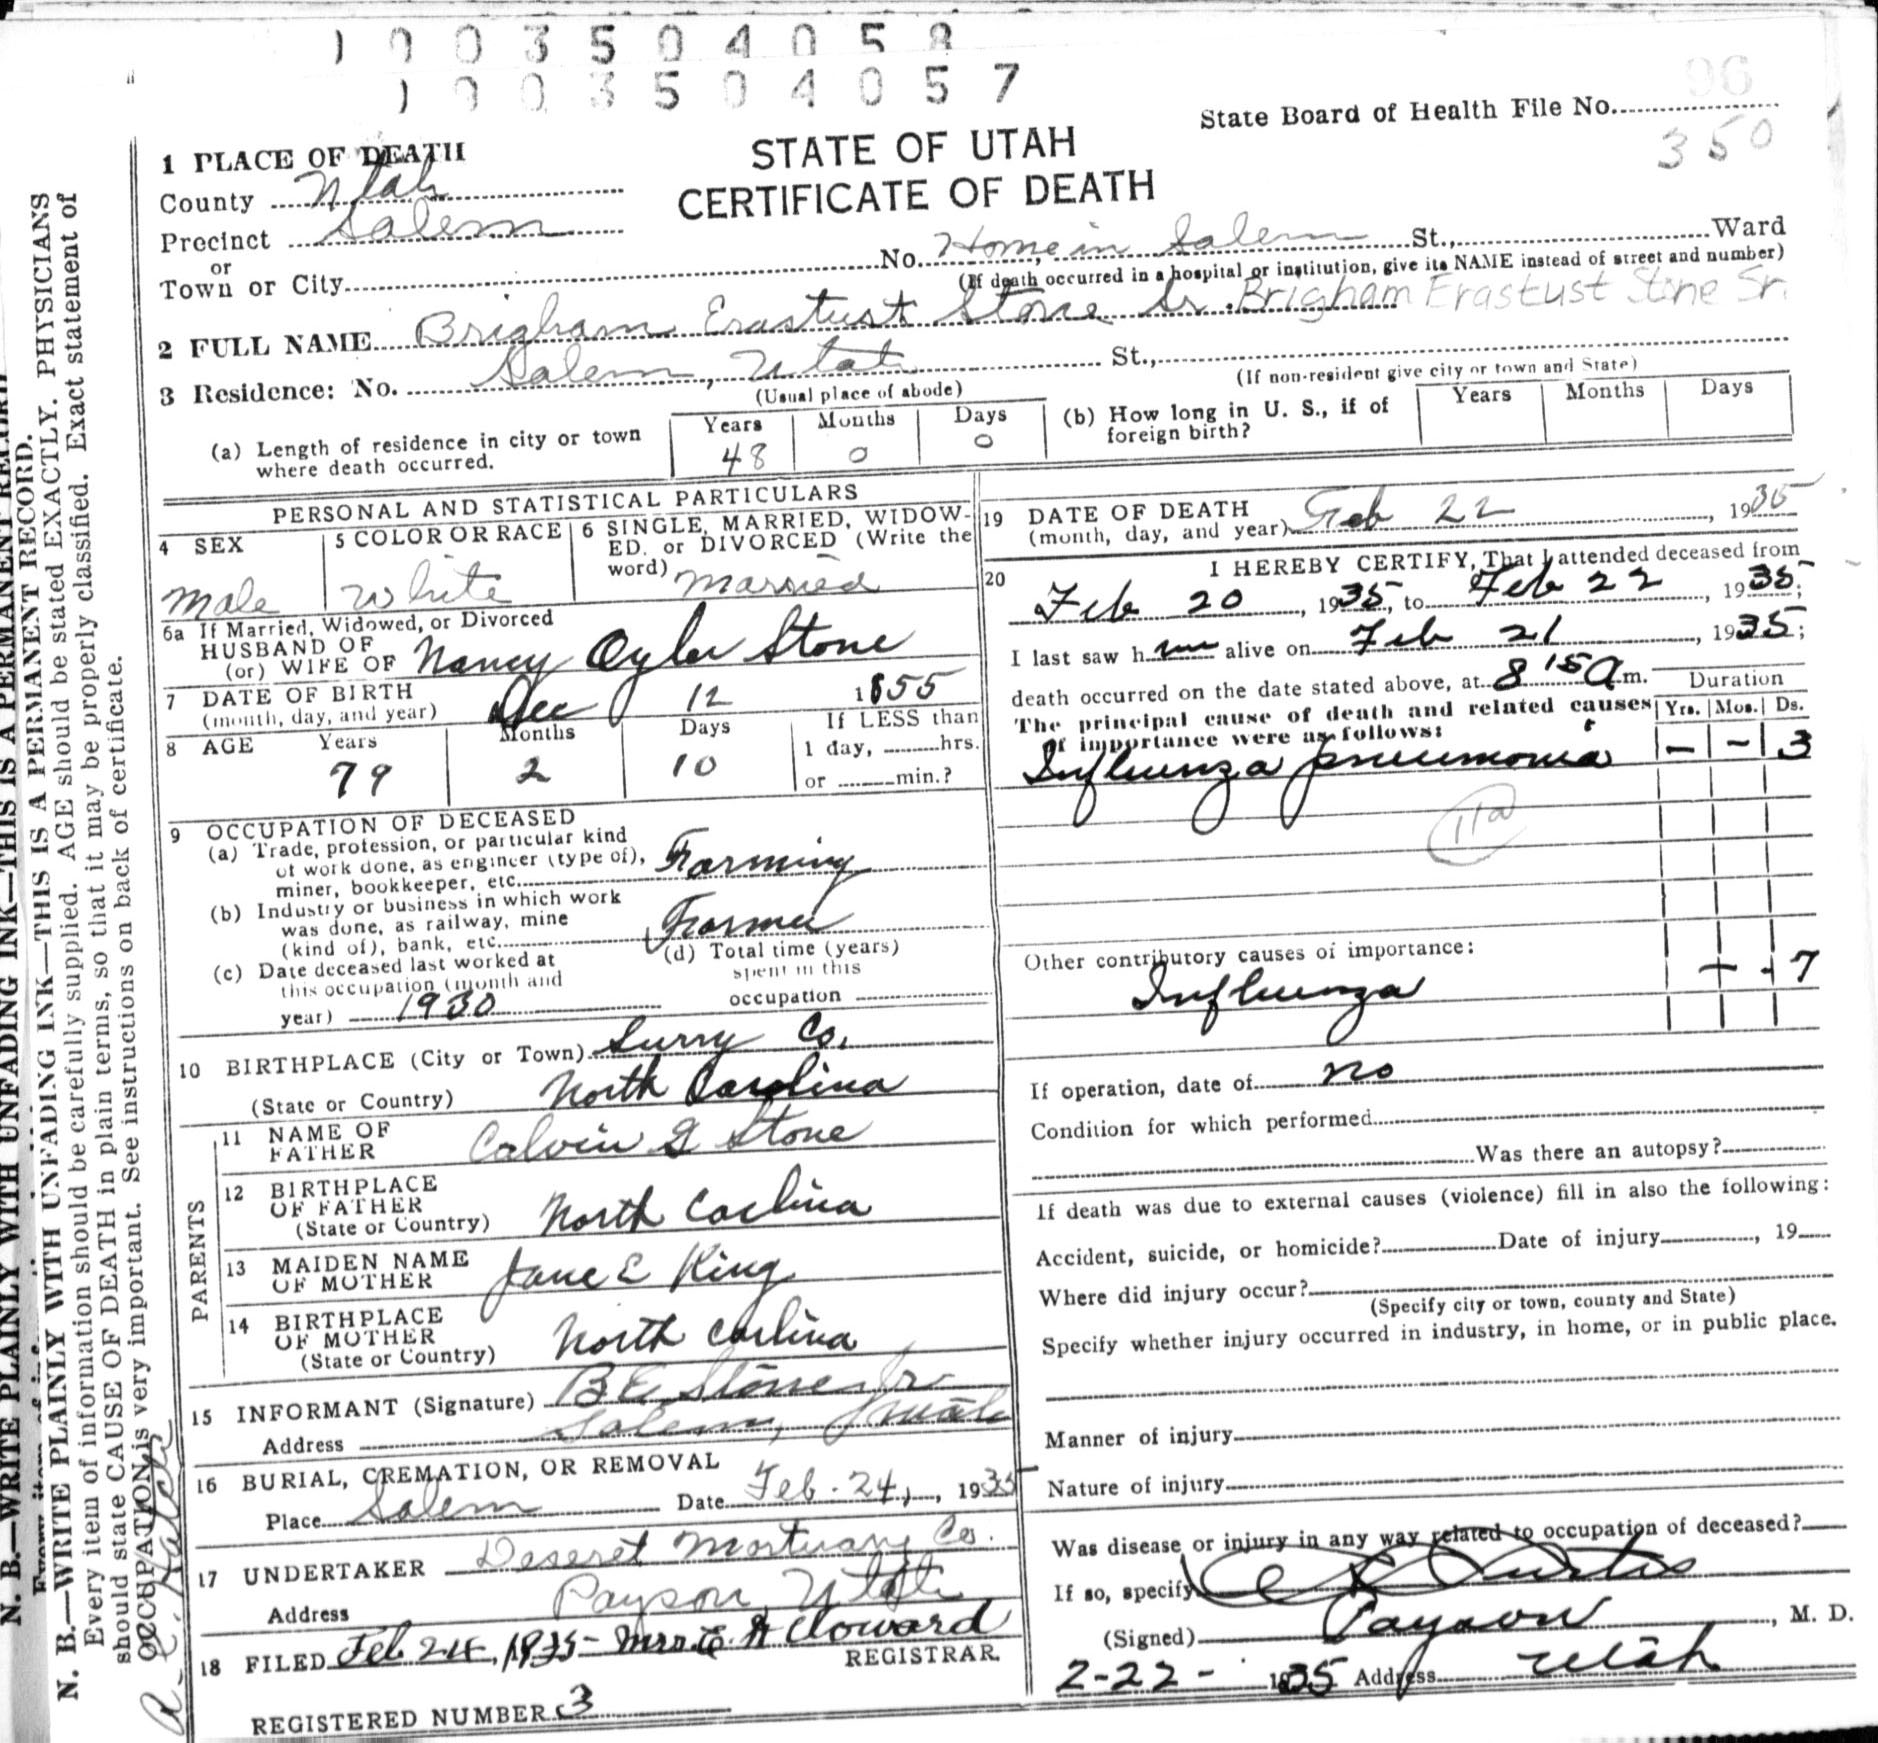 1 0 0 3 5 0 4 0 5 8
1 0 0 3 5 0 4 0 5 7
96
State Board of Health File No.
350
STATE OF UTAH
CERTIFICATE OF DEATH
1 PLACE OF DEATH
County Utah
Precinct Salem
or
Town or City
No. Home in Salem St., Ward
(If death occurred in a hospital or institution, give its NAME instead of street and number)
2 FULL NAME Brigham Erastust Stone Sr. Brigham Erastust Stone Sr.
3 Residence: No. Salem, Utah St.,
(Usual place of abode)
(If non-resident give city or town and State)
(a) Length of residence in city or town where death occurred.
Years Months Days
48 0 0
(b) How long in U. S., if of foreign birth?
Years Months Days
PERSONAL AND STATISTICAL PARTICULARS
4 SEX
male
5 COLOR OR RACE
White
6 SINGLE, MARRIED, WIDOW-
ED. or DIVORCED (Write the
word) married
6a If Married, Widowed, or Divorced
HUSBAND OF
(or) WIFE OF Nancy Oyler Stone
7 DATE OF BIRTH
(month, day, and year) Dec 12 1855
8 AGE Years Months Days
79 2 10
If LESS than
1 day, hrs.
or min.?
9 OCCUPATION OF DECEASED
(a) Trade, profession, or particular kind
of work done, as engineer (type of),
miner, bookkeeper, etc. Farming
(b) Industry or business in which work
was done, as railway, mine
(kind of), bank, etc. Farmer
(c) Date deceased last worked at
this occupation (month and
year) 1930
(d) Total time (years)
spent in this
occupation
10 BIRTHPLACE (City or Town) Surry Co.
(State or Country) North Carolina
PARENTS
11 NAME OF
FATHER Calvin G Stone
12 BIRTHPLACE
OF FATHER
(State or Country) North Caolina
13 MAIDEN NAME
OF MOTHER Jane E King
14 BIRTHPLACE
OF MOTHER
(State or Country) North Carlina
15 INFORMANT (Signature) B E Stone Jr
Address Salem, Utah
16 BURIAL, CREMATION, OR REMOVAL
Place Salem Date Feb. 24, 1935
17 UNDERTAKER Deseret Mortuary Co.
Address Payson, Utah
18 FILED Feb 24, 1935 - Mrs E H Cloward
REGISTRAR.
REGISTERED NUMBER 3
19 DATE OF DEATH
(month, day, and year) Feb 22, 1935
20 I HEREBY CERTIFY, That I attended deceased from
Feb 20, 1935, to Feb 22, 1935;
I last saw him alive on Feb 21, 1935;
death occurred on the date stated above, at 8 15 a m.
The principal cause of death and related causes
of importance were as follows:
Duration
Yrs. Mos. Ds.
Influenza pneumonia - - 3
11a
Other contributory causes of importance:
Influenza - - 7
If operation, date of no
Condition for which performed
Was there an autopsy?
If death was due to external causes (violence) fill in also the following:
Accident, suicide, or homicide? Date of injury, 19
Where did injury occur?
(Specify city or town, county and State)
Specify whether injury occurred in industry, in home, or in public place.
Manner of injury
Nature of injury
Was disease or injury in any way related to occupation of deceased?
If so, specify
Curtis
(Signed) Payson, M. D.
2-22- 1935 Address Utah
N. B.—WRITE PLAINLY WITH UNFADING INK—THIS IS A PERMANENT RECORD.
N. B.—WRITE PLAINLY WITH UNFADING INK—THIS IS A PERMANENT RECORD.
Every item of information should be carefully supplied. AGE should be stated EXACTLY. PHYSICIANS
should state CAUSE OF DEATH in plain terms, so that it may be properly classified. Exact statement of
OCCUPATION is very important. See instructions on back of certificate.